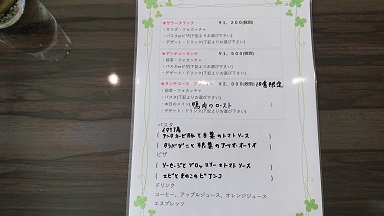 ★サラダランチ ¥1,200(税別)
・サラダ・フォカッチャ
・パスタorピザ(下記よりお選び下さい)
・デザート・ドリンク(下記よりお選び下さい)
★アンティーランチ ¥1,500(税別)
・前菜・フォカッチャ
・パスタorピザ(下記よりお選び下さい)
・デザート・ドリンク(下記よりお選び下さい)
★ランチコース ¥2,000(税別) 10食限定
・前菜・フォカッチャ
・パスタ(下記よりお選び下さい)
・本日のメイン(鴨肉のロースト
・デザート・ドリンク(下記よりお選び下さい)
パスタ
イタリア産
と青菜のトマトソース
と根菜のアーリオ・オーリオ
ピザ
ソーセージとブロッコリーのトマトソース
エビときのこのビアンコ
ドリンク
コーヒー、アップルジュース、オレンジジュース
エスプレッソ